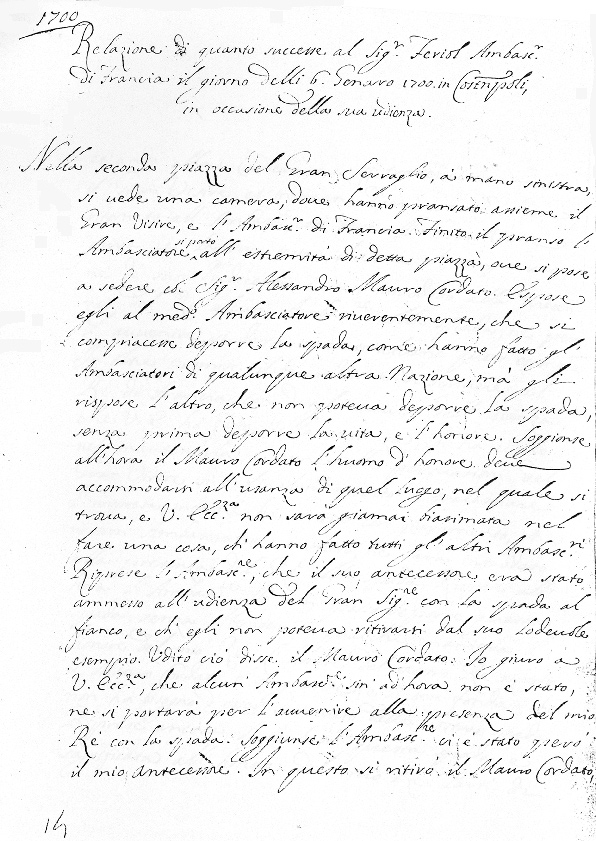 1700
Relazione di quanto successe al Sig.r Feriol Ambasc.r
di Francia il giorno delli 6. Genaro 1700. in Costñpoli,
in occasione della sua udienza.
Nella seconda piazza del Gran Serraglio, à mano sinistra,
si vede una camera, dove hanno pransato assieme il
Gran Visire, e l'Ambasc.r di Francia. Finito il pranso l'
Ambasciatore si portò all' estremità di detta piazza, ove si pose
a sedere col Sig.r Alessandro Mauro Cordato. Espose
egli al med.o Ambasciatore riverentemente, che si
compiacesse deporre la spada, come hanno fatto gl'
Ambasciatori di qualunque altra Nazione, mà gli
rispose l'altro, che non poteva deporre la spada,
senza prima deporre la vita, e l'honore. Soggionse
all'hora il Mauro Cordato l'huomo d'honore deve
accommodarsi all'usanza di quel luogo, nel quale si
trova, e V. Ecc.za non sarà giamai biasimata nel
fare una cosa, ch'hanno fatto tutti gl'altri Ambasc.ri
Riprese l'Ambasc.re, che il suo antecessore era stato
ammesso all'udienza del Gran Sig.re con la spada al
fianco, e ch'egli non poteva ritirarsi dal suo lodevole
esempio. Udito ciò disse il Mauro Cordato: Io giuro a
V. Ecc.za, che alcun Ambasc.re sin ad hora non è stato,
ne si portarà per l'avvenire alla presenza del mio
Rè con la spada: Soggiunse l'Ambasc.re ci è stato però
il mio antecessore. In questo si ritirò il Mauro Cordato,